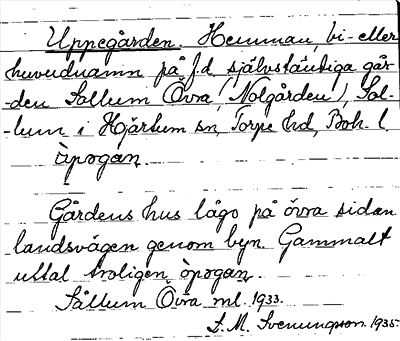 Uppegården. Hemman, bi- eller
huvudnamn på f.d. självständiga går-
-den Sollum Övra (Nolgården), Sol-
-lum i Hjärtum sn, Torpe hd, Boh. l.
òpogan.
Gårdens hus lågo på övra sidan
landsvägen genom byn. Gammalt
uttal troligen òpogan.
Sållum Övra ml. 1933.
S. M. Svenungson. 1935.